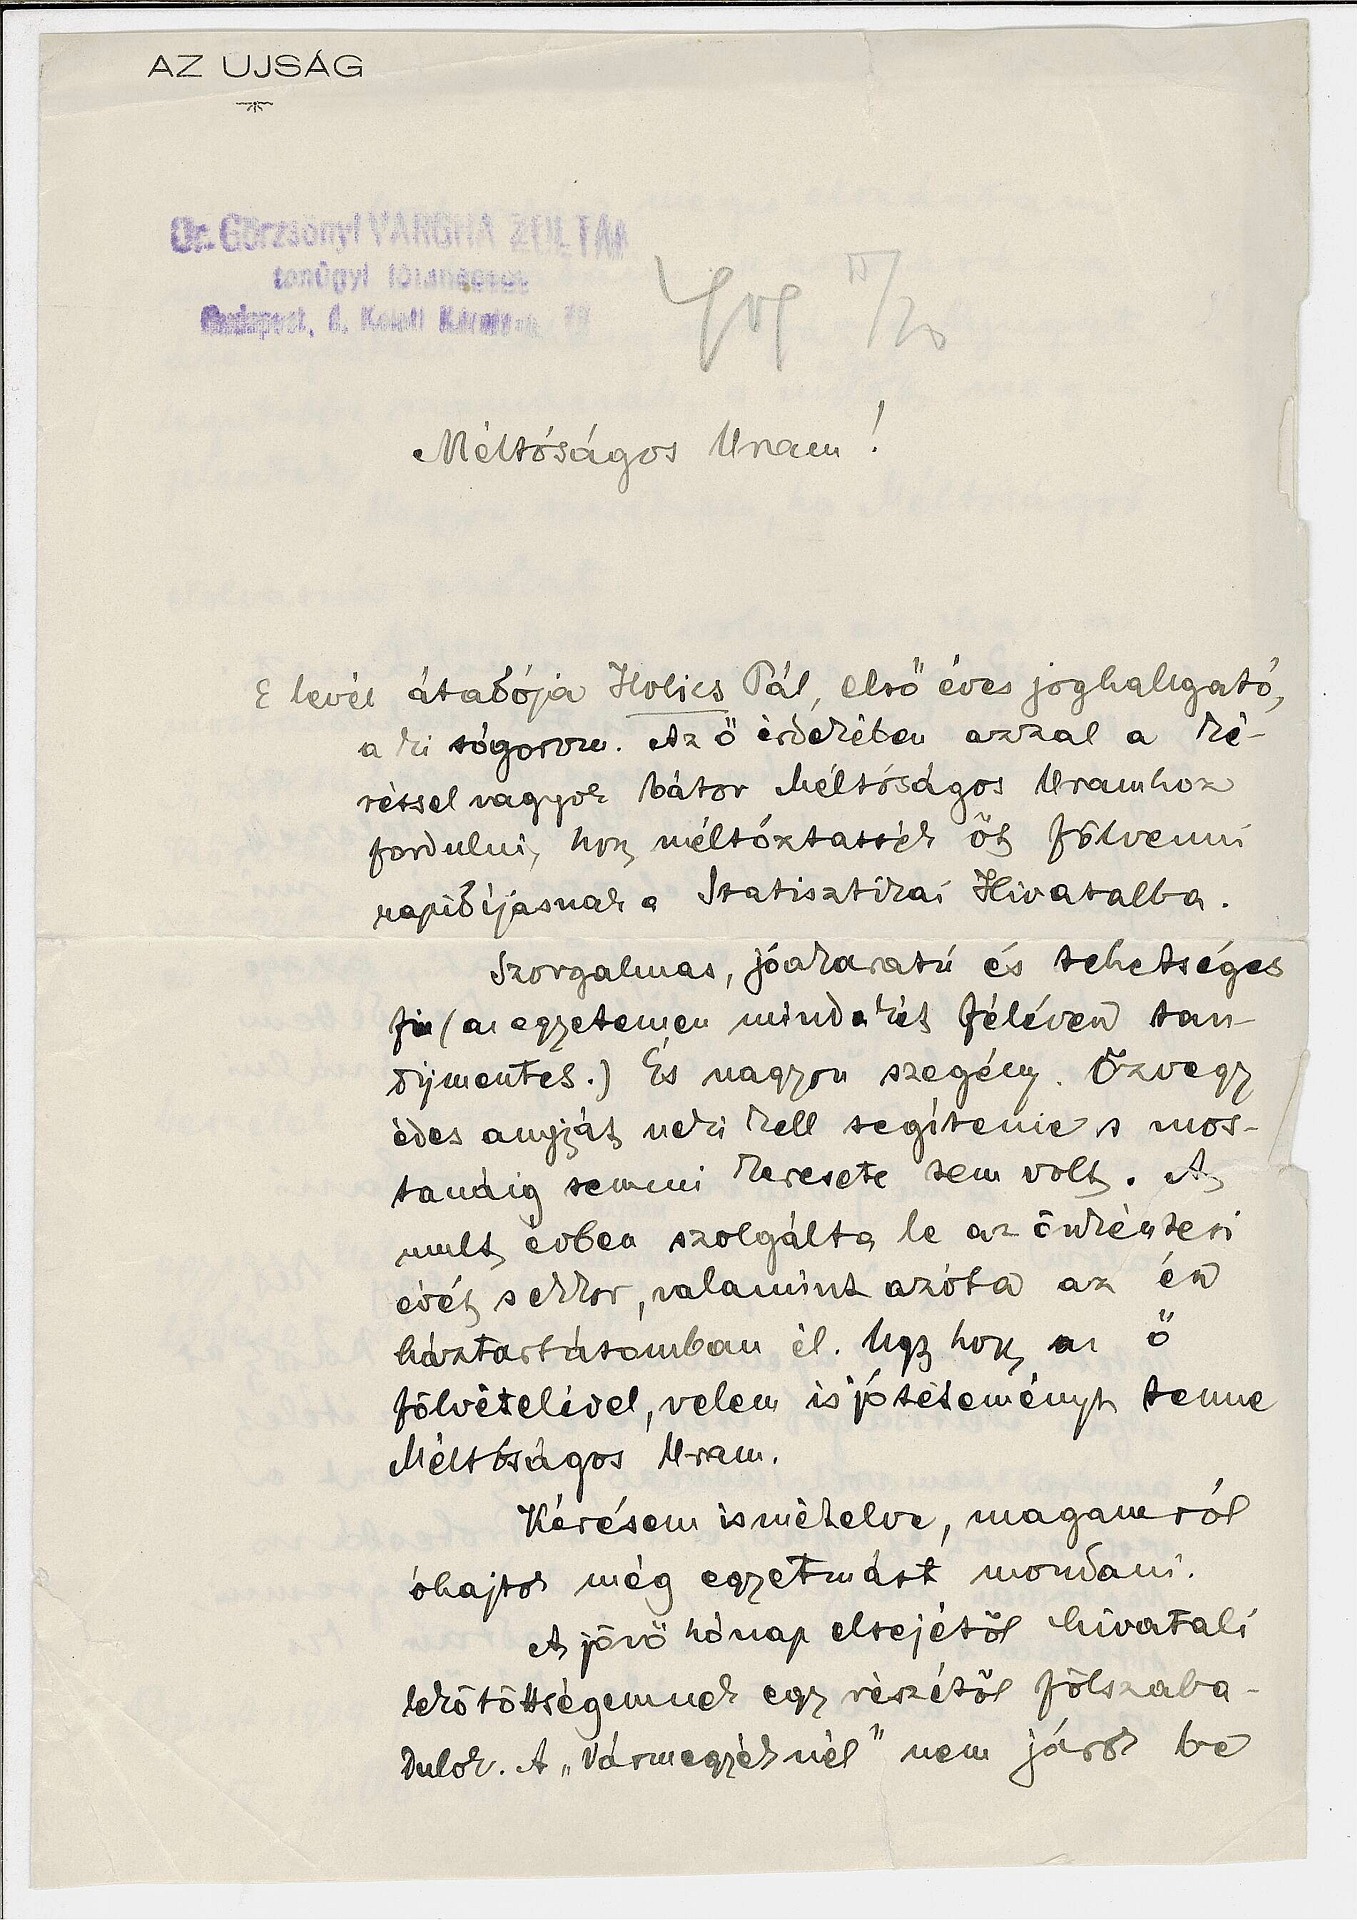 AZ UJSÁG
Dr. Görzsönyi VARGHA ZOLTÁN
tanügyi főtanácsos
Budapest, Keleti Károly
909 IV/20
Méltóságos Uram!
E levél átadója Holics Pál, első éves joghallgató,
a ki sógorom. Az ő érdekében azzal a ké-
réssel vagyok bátor Méltóságos Uramhoz
fordulni, hogy méltóztassék őt fölvenni
napidíjasnak a Statisztikai Hivatalba.
Szorgalmas, jóakaratú és tehetséges
fiu (az egyetemen mind a két féléven tan-
díjmentes.) És nagyon szegény. Özvegy
édes anyját neki kell segítenie s mos-
tanáig semmi keresete sem volt. A
mult évben szolgálta le az önkéntesi
évét s ekkor, valamint azóta az én
háztartásomban él. Ugy hogy az ő
fölvételével, velem is jótéteményt tenne
Méltóságos Uram.
Kérésem ismételve, magamról
óhajtok még egyetmást mondani.
A jövő hónap elsejétől hivatali
lekötöttségemnek egy részétől fölszaba-
dulok. A „Vármegyéknél" nem járok be